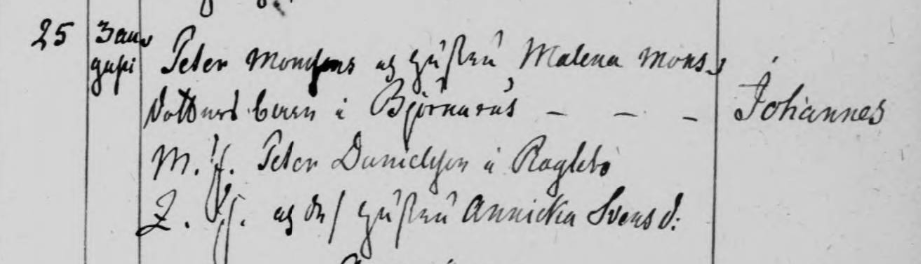 25 Peter Monsons og hustru Malena Mons
dotters barn i Björnarås – – – Johannes
M. ff. Peter Danielson i Raglebo
Z. ff. og des hustru Annicka Svens d: